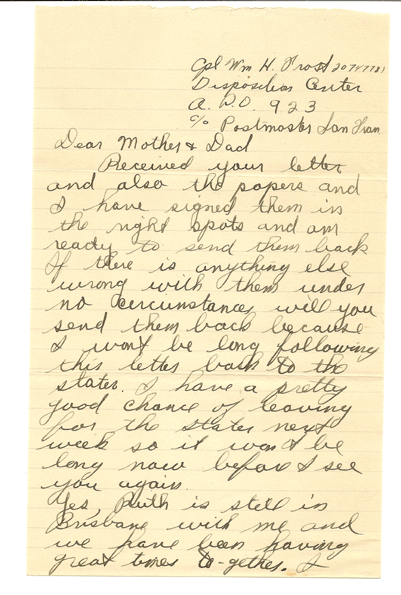 Cpl Wm H. Frost 20747781
Disposition Center
A.P.O. 923
c/o Postmaster San Fran
Dear Mother & Dad
Received your letter
and also the papers and
I have signed them in
the right spots and am
ready to send them back
If there is anything else
wrong with them under
no circumstances will you
send them back because
I won't be long following
this letter back to the
states. I have a pretty
good chance of leaving
for the states next
week so it won't be
long now before I see
you again.
Yes, Ruth is still in
Brisbane with me and
we have been having
great times to-gether. I